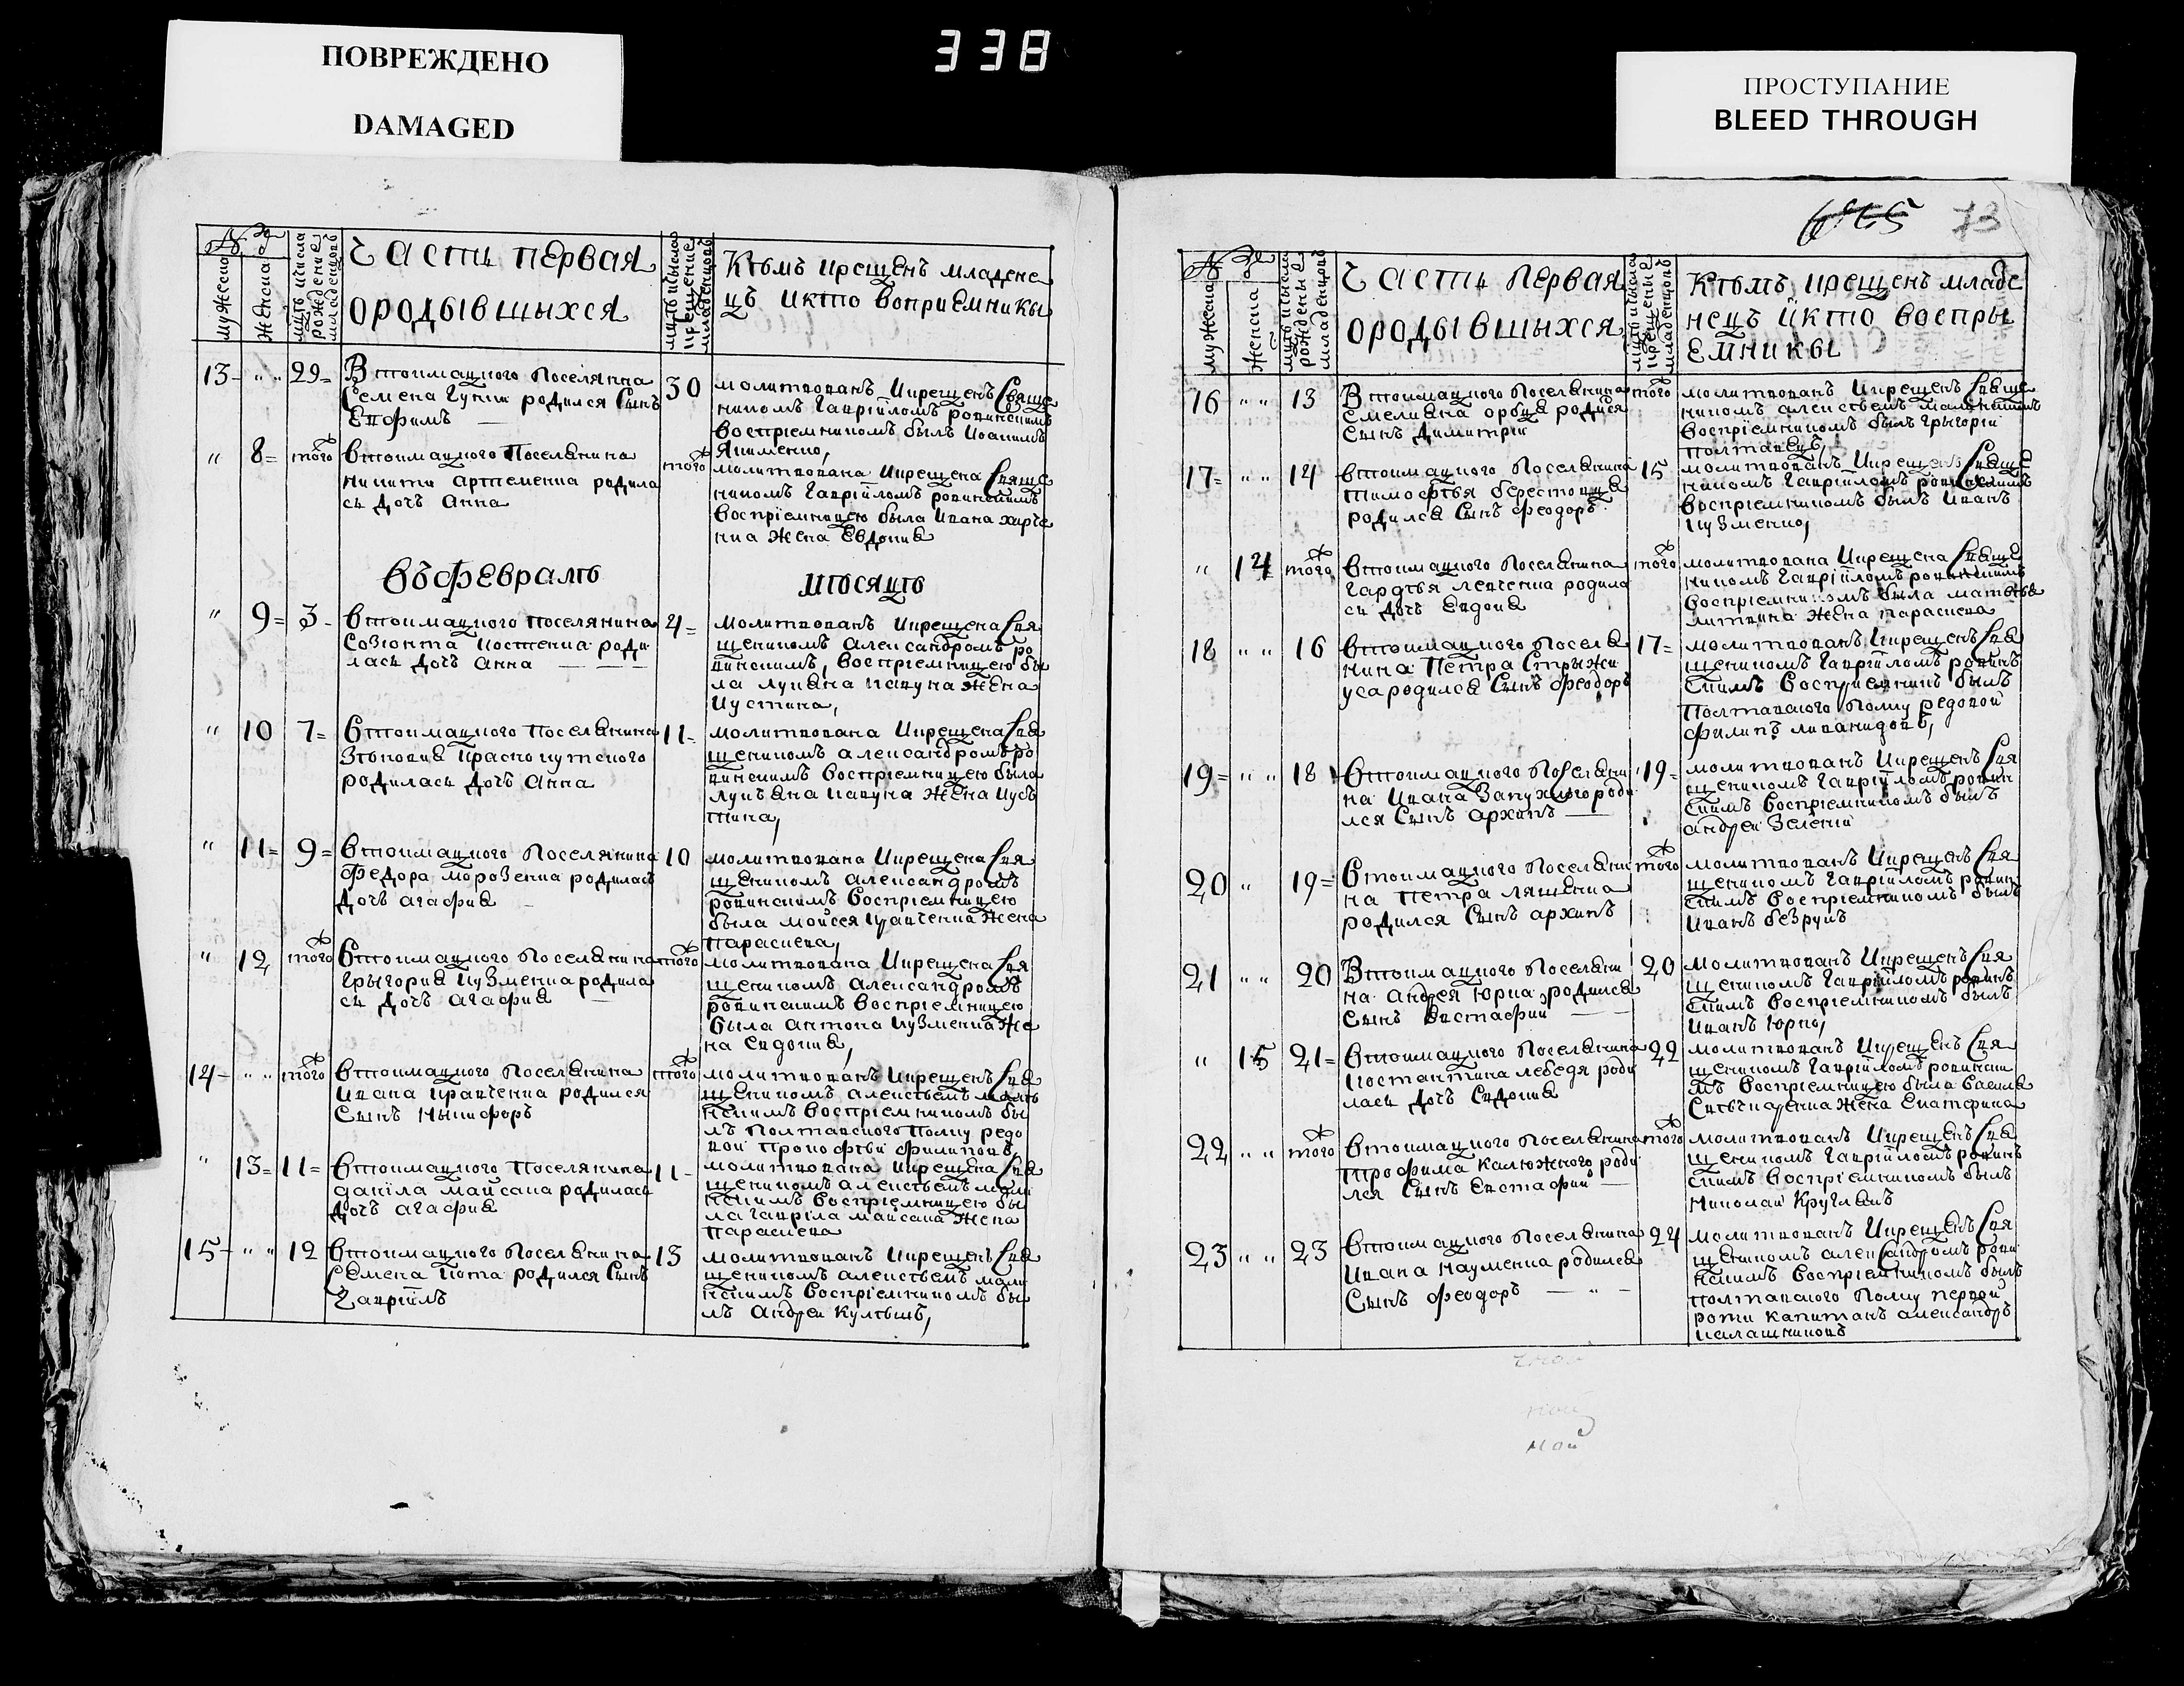 ПОВРЕЖДЕНО
DAMAGED
338
ПРОСТУПАНИЕ
BLEED THROUGH
73
№
мужеска
женска
рождение
младенцовъ
Часть первая
ородывшыхся
крещение
младенцовъ
Кѣмъ крещенъ младене
цъ икто воприемники
13 29 Втоимацкого поселянина
Семена Гупки родился Сынъ
Евфимъ
30 молитвованъ Икрещенъ Свяще
никомъ Гавріиломъ ровинскимъ
воспріемникомъ былъ Иоакимъ
Якименко,
8 того втоимацкого Поселянина
никити артеменка родила
сь дочъ анна
того молитвована Икрещена Свяще
никомъ Гавріиломъ ровинскимъ
воспріемницею была Ивана харче
нка жена Евдокия
въ февралѣ мѣсяцѣ
9 3 втоимацкого поселянина
Созонта Костенка роди
лась дочъ анна
4 молитвованъ Икрещена Свя
щеникомъ александромъ ро
винскимъ, воспріемницею бы
ла лукяна кавуна жена
Иустина,
10 7 втоимацкого поселянина
Зѣновия краснокутского
родилась дочъ анна
11 молитвована Икрещена Свя
щеникомъ александромъ ро
винскимъ воспріемницею была
лукъяна кавуна жена Иус
тина,
11 9 втоимацкого поселянина
Федора морозенка родилась
дочъ агафия
10 молитвована Икрещена Свя
щеникомъ александромъ
ровинскимъ воспріемницею
была мойсея кравченка жена
параскева,
12 того втоимацкого поселянина
Григория кузменка родила
сь дочъ агафия
того молитвована Икрещена Свя
щеникомъ александромъ
ровинскимъ воспріемницею
была антона кузменка же
на евдокия,
14 того втоимацкого поселянина
Ивана кравченка родился
Сынъ никифоръ
того молитвованъ Икрещенъ Свя
щеникомъ алексѣемъ малы
нскимъ воспріемникомъ бы
лъ полтавского полку редо
вой прокофѣй филиповъ
13 11 втоимацкого поселянина
данiила майсака родилась
дочъ агафия
11 молитвована Икрещена Свя
щеникомъ алексѣемъ малы
нскимъ воспріемницею бы
ла гаврiла майсака жена
параскева
15 12 втоимацкого поселянина
Семена кота родился Сынъ
Гавріилъ
13 молитвованъ Икрещенъ Свя
щеникомъ алексѣемъ малы
нскимъ воспріемникомъ бы
лъ андрей култышъ,
№
мужеска
женска
рождены е
младенцовъ
Часть первая
ородывшыхся
крещены е
младенцовъ
Кѣмъ крещенъ младе
нецъ икто воспры
емники
16 13 Втоимацкого поселянина
Емелияна орбця родился
Сынъ димитрiй
того молитвованъ Икрещенъ Свяще
никомъ алексѣемъ малынскимъ
воспріемникомъ былъ григорiй
полтавецъ,
17 14 втоимацкого поселянина
тимофѣя берестовця
родился Сынъ феодоръ
15 молитвованъ Икрещенъ Свяще
никомъ Гавріиломъ ровинскимъ
воспріемникомъ былъ иванъ
кузменко,
14 того втоимацкого поселянина
гардѣя левченка родила
сь дочъ евдокия
того молитвована Икрещена Свяще
никомъ Гавріиломъ ровинскимъ
воспріемникомъ была матвѣя
литвина жена параскева
18 16 втоимацкого поселя
нина петра Стрыжи
уса родился Сынъ феодоръ
17 молитвованъ Икрещенъ Свя
щеникомъ Гавріиломъ ровин
скимъ воспріемникъ былъ
полтавского полку редовой
филипъ
19 18 втоимацкого поселяни
на ивана Запухлого роди
лся Сынъ архипъ
19 молитвованъ Икрещенъ Свя
щеникомъ Гавріиломъ ровин
скимъ воспріемникомъ былъ
андрей Зелений
20 19 втоимацкого поселяни
на петра ляшенка
родился Сынъ архипъ
того молитвованъ Икрещенъ Свя
щеникомъ Гавріиломъ ровин
скимъ воспріемникомъ былъ
иванъ безрукъ
21 20 Втоимацкого поселяни
на андрея юрка родился
Сынъ евстафий
20 молитвованъ Икрещенъ Свя
щеникомъ Гавріиломъ ровин
скимъ воспріемникомъ былъ
иванъ юрко,
15 21 втоимацкого поселянина
костантина лебедя роди
лась дочъ евдокия
22 молитвованъ Икрещенъ Свя
щеникомъ Гавріиломъ ровински
мъ воспріемницею была василя
жена екатерина
22 того втоимацкого поселянина
трофима калюжного роди
лся Сынъ евстафий
того молитвованъ Икрещенъ Свя
щеникомъ Гавріиломъ ровин
скимъ воспріемникомъ былъ
николай круглякъ
23 23 втоимацкого поселянина
ивана науменка родился
Сынъ феодоръ
24 молитвованъ Икрещенъ Свя
щеникомъ александромъ рови
нскимъ воспріемникомъ былъ
полтавского полку первой
роти капитанъ александръ
калашниковъ